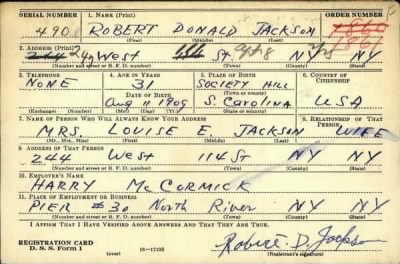 SERIAL NUMBER 1. NAME (Print) ORDER NUMBER
490 ROBERT DONALD JACKSON
(First) (Middle) (Last)
2. ADDRESS (Print)
West St NY
(Number and street or R. F. D. number) (Town) (County) (State)
3. TELEPHONE 4. AGE IN YEARS 5. PLACE OF BIRTH 6. COUNTRY OF CITIZENSHIP
NONE 31 SOCIETY HILL
DATE OF BIRTH (Town or county)
Aug 11 1909 S. CAROLINA USA
(Exchange) (Number) (Mo.) (Day) (Yr.) (State or country)
7. NAME OF PERSON WHO WILL ALWAYS KNOW YOUR ADDRESS 8. RELATIONSHIP OF THAT PERSON
MRS. LOUISE E. JACKSON WIFE
(Mr., Mrs., Miss) (First) (Middle) (Last)
9. ADDRESS OF THAT PERSON
244 West 114 St NY NY
(Number and street or R. F. D. number) (Town) (County) (State)
10. EMPLOYER'S NAME
HARRY McCORMICK
11. PLACE OF EMPLOYMENT OR BUSINESS
PIER #30 North River NY NY
(Number and street or R. F. D. number) (Town) (County) (State)
I AFFIRM THAT I HAVE VERIFIED ABOVE ANSWERS AND THAT THEY ARE TRUE.
Robert D. Jackson
REGISTRATION CARD
D. S. S. Form 1 (over) 16—17105 (Registrant's signature)